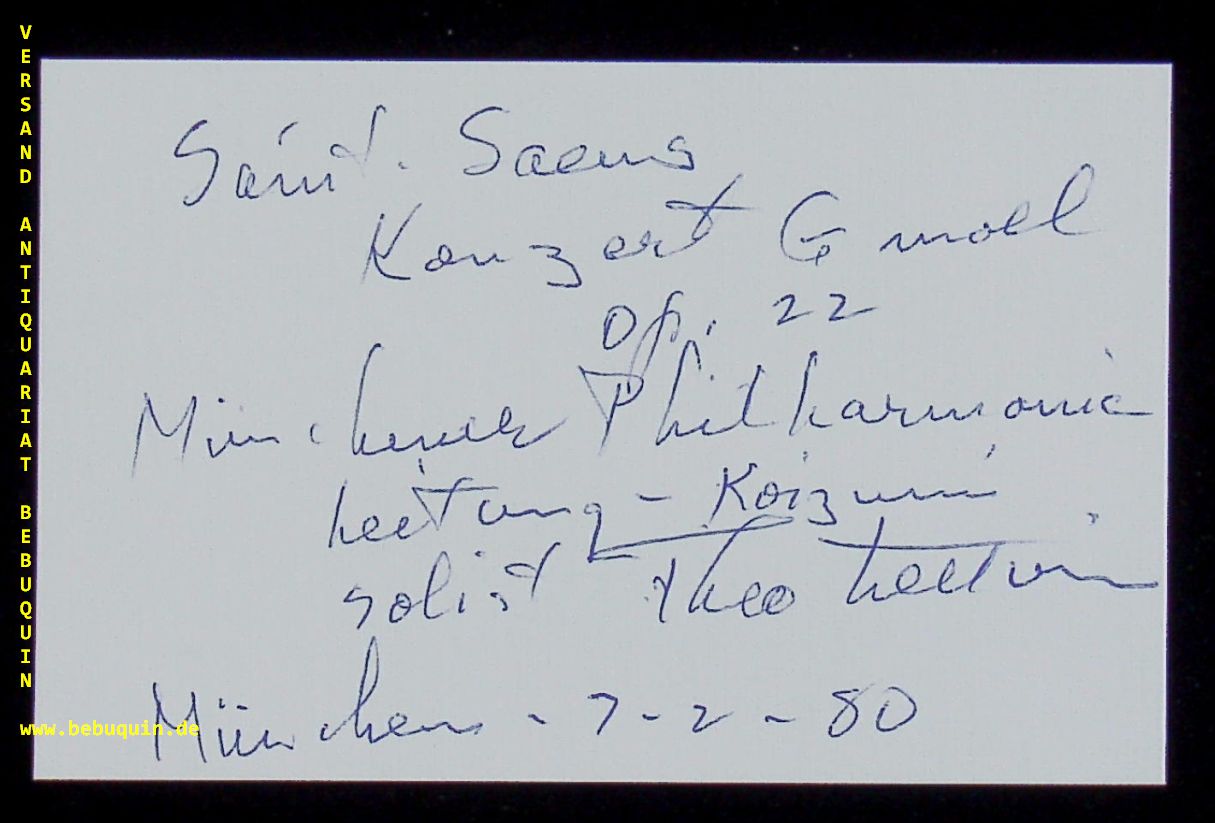 VERSAND ANTIQUARIAT BEBUQUIN
www.bebuquin.de
Saint-Saens
Konzert G moll
op. 22
Münchener Philharmonic
Leitung - Koizumi
Solist - Theo
München - 7-2-80